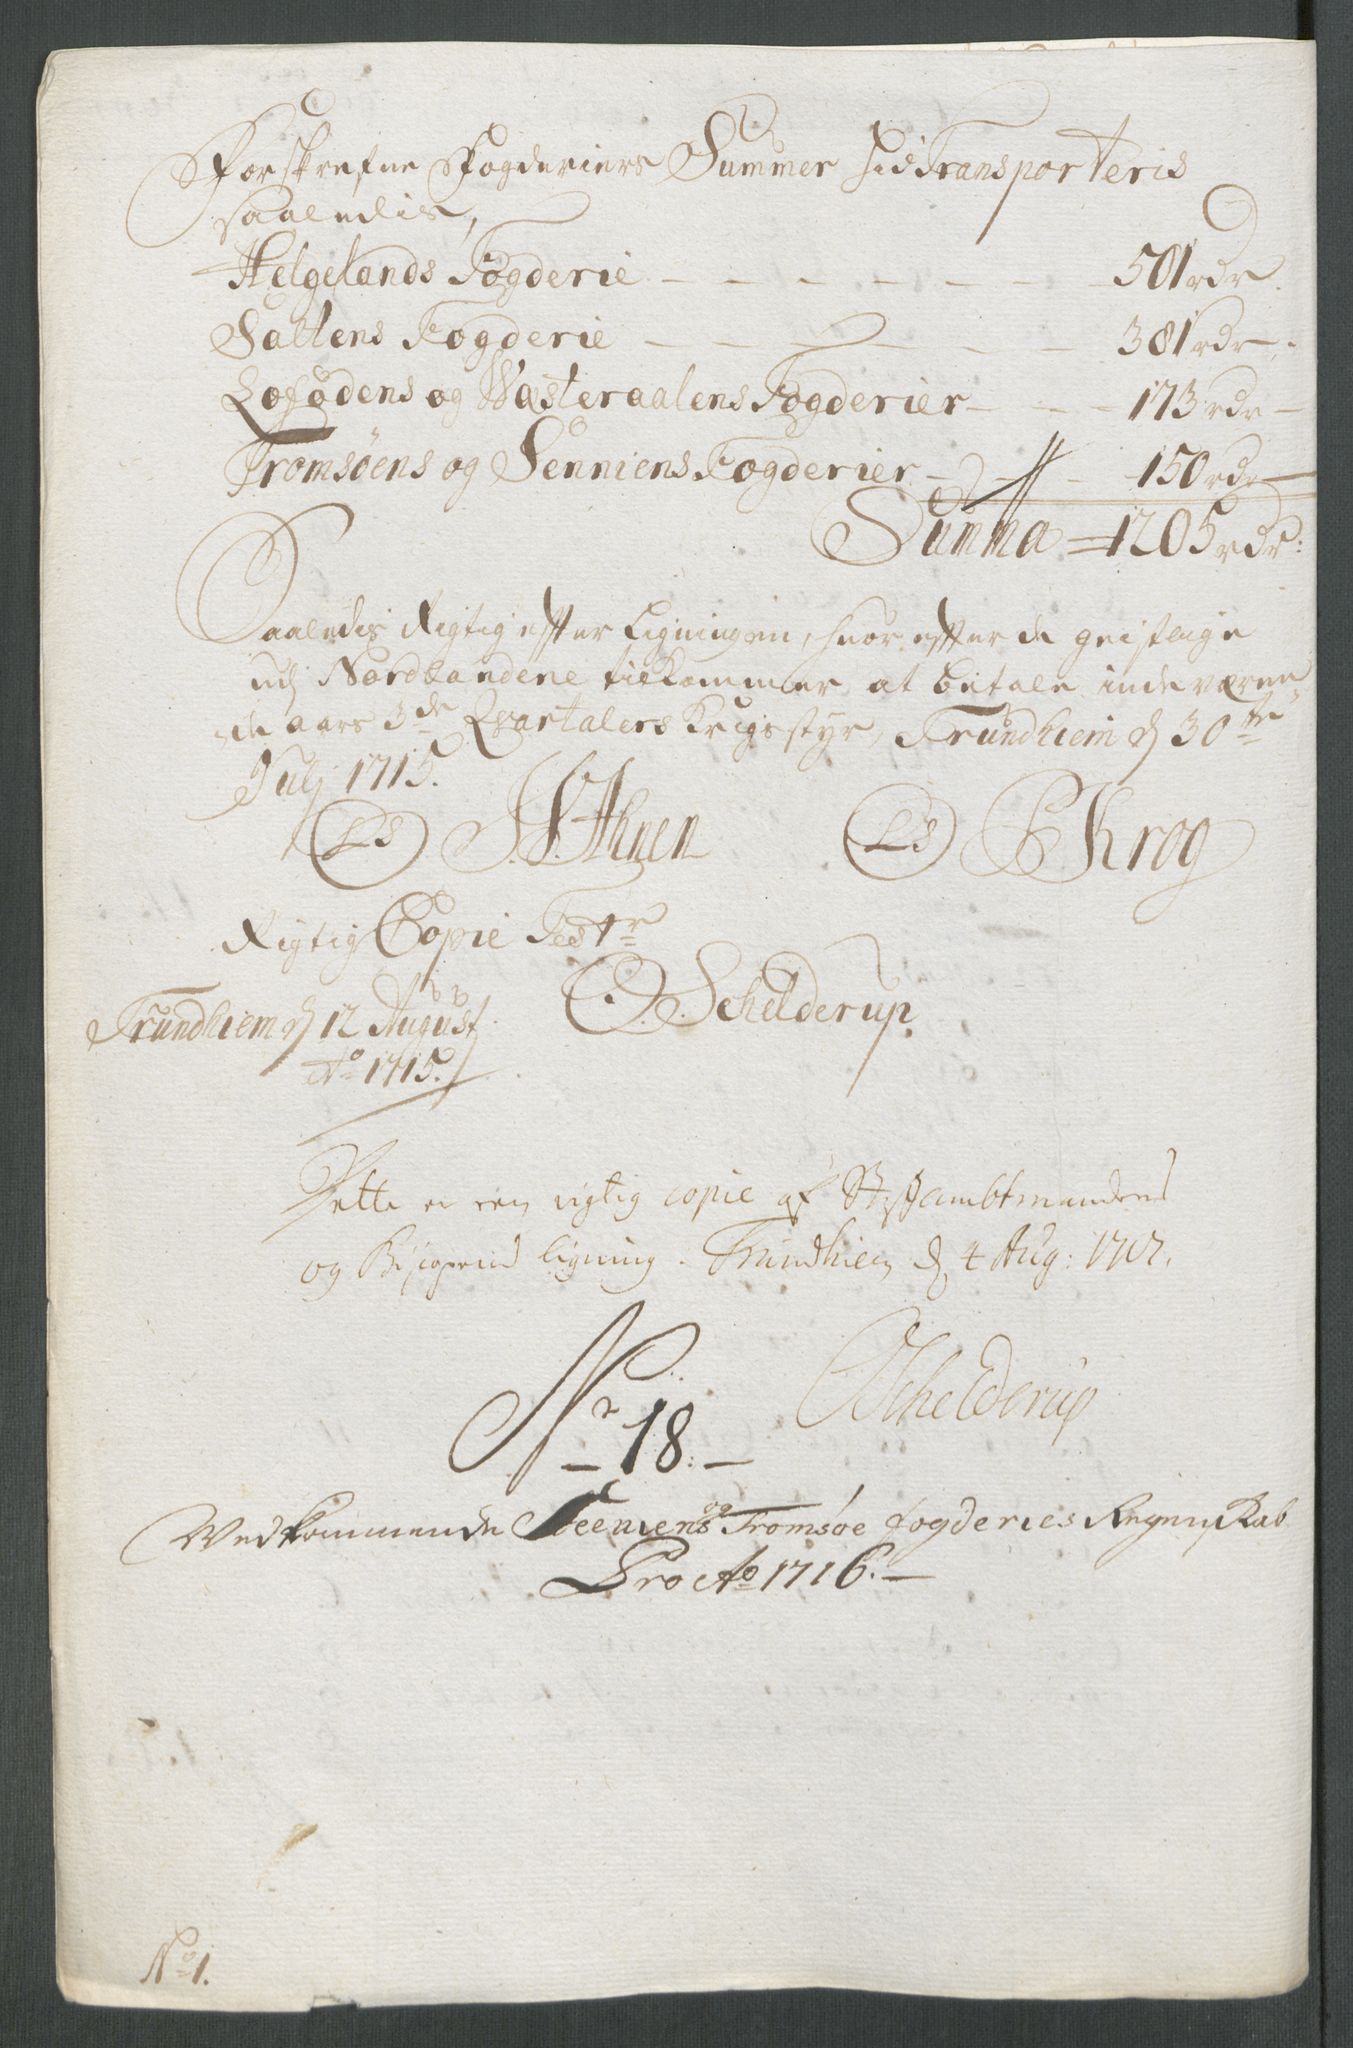 Forskrefne Fogderiers Summer hid Transporteris
saaledis,
Helgelands Fogderie — — — — — — — 501 rdr.
Saltens Fogderie — — — — — — — 381 rdr.
Lofødens og Wæsteraalens Fogderier — — — 173 rdr
Tromsøens og Senniens Fogderier — — — 150 rdr
Summa = 1205 rdr:
Saaledis Rigtig effter Ligningen, huor effter de geistlige
udj Nordlandene tilkommer at betale indeværen-
de aars 3de Qvartalers Krigsstyr, Trundhiem d 30te
Julj 1715.
LS Ahnen LS P Krog
Rigtig Copie Test:r
O. Schelderup.
Trundhiem d 12 August
Ao 1715.
Dette er een rigtig copie af Stifftambtmandens
og Biscopens ligning. Trundhiem d 4 Aug: 1717.
OSchelderup
Nr 18.
Vedkommende Seeniens og Tromsøe fogderies Regenskab
Pro Ao 1716.
No 1.